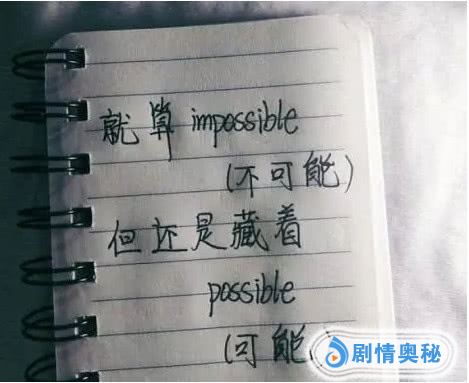 就算 impossible
(不可能)
但还是藏着
possible
(可能
剧情奥秘